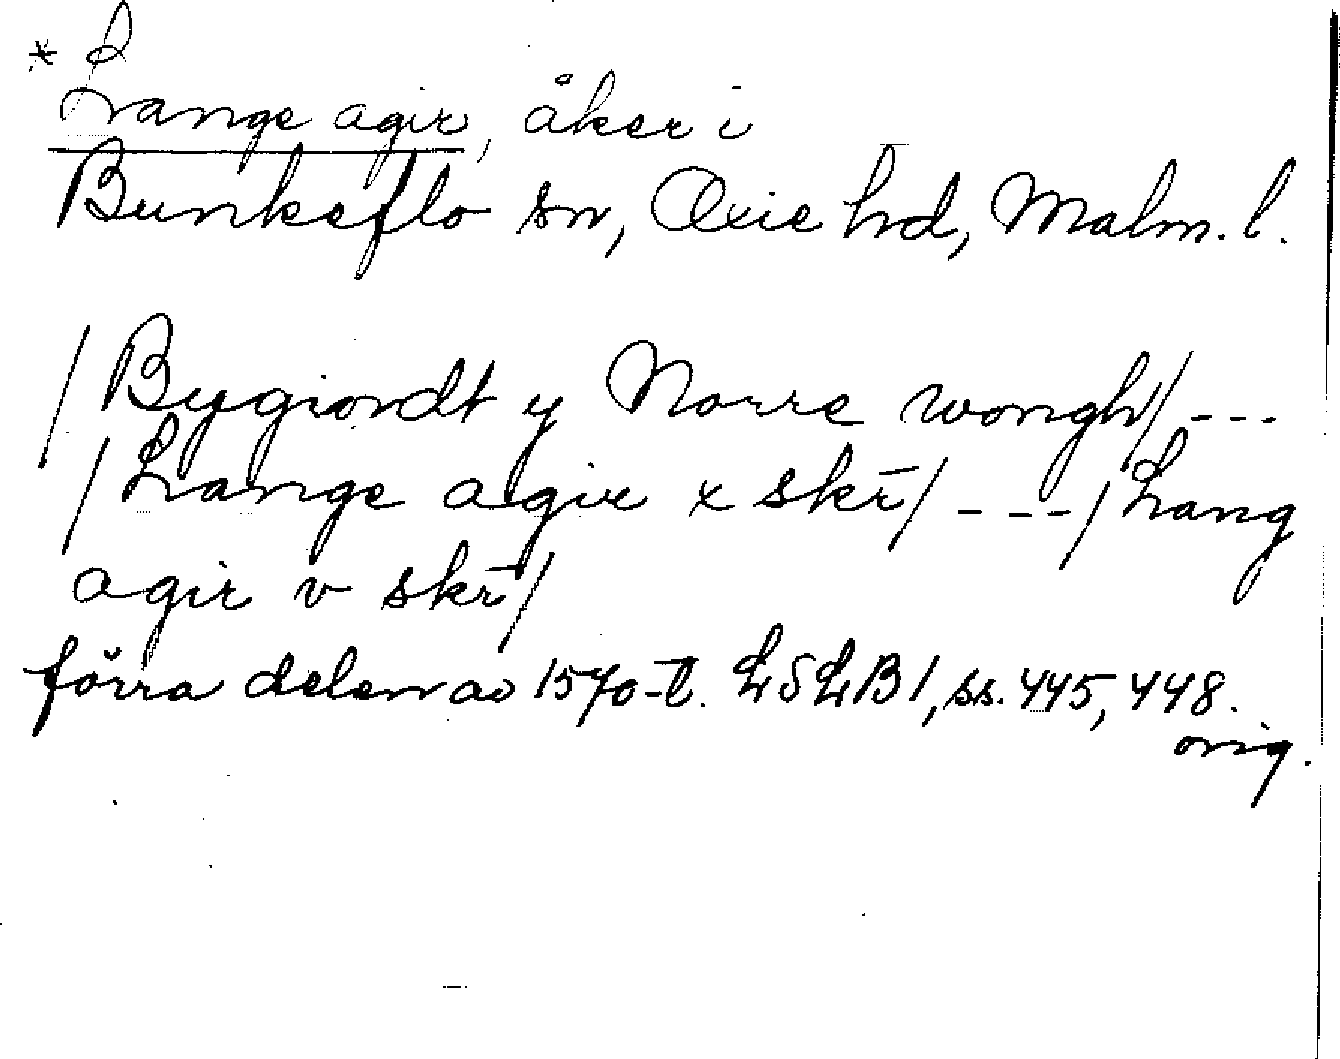 * Lange agir, åker i
Bunkeflo sn, Oxie hd, Malm. l.
/Bygiordt y Norre wongh/ ---
/Lange agir x skr̄/ ---/Lang
agir v skr̄/
förra delen av 1570-t. LSLB 1, ss. 445, 448.
orig.